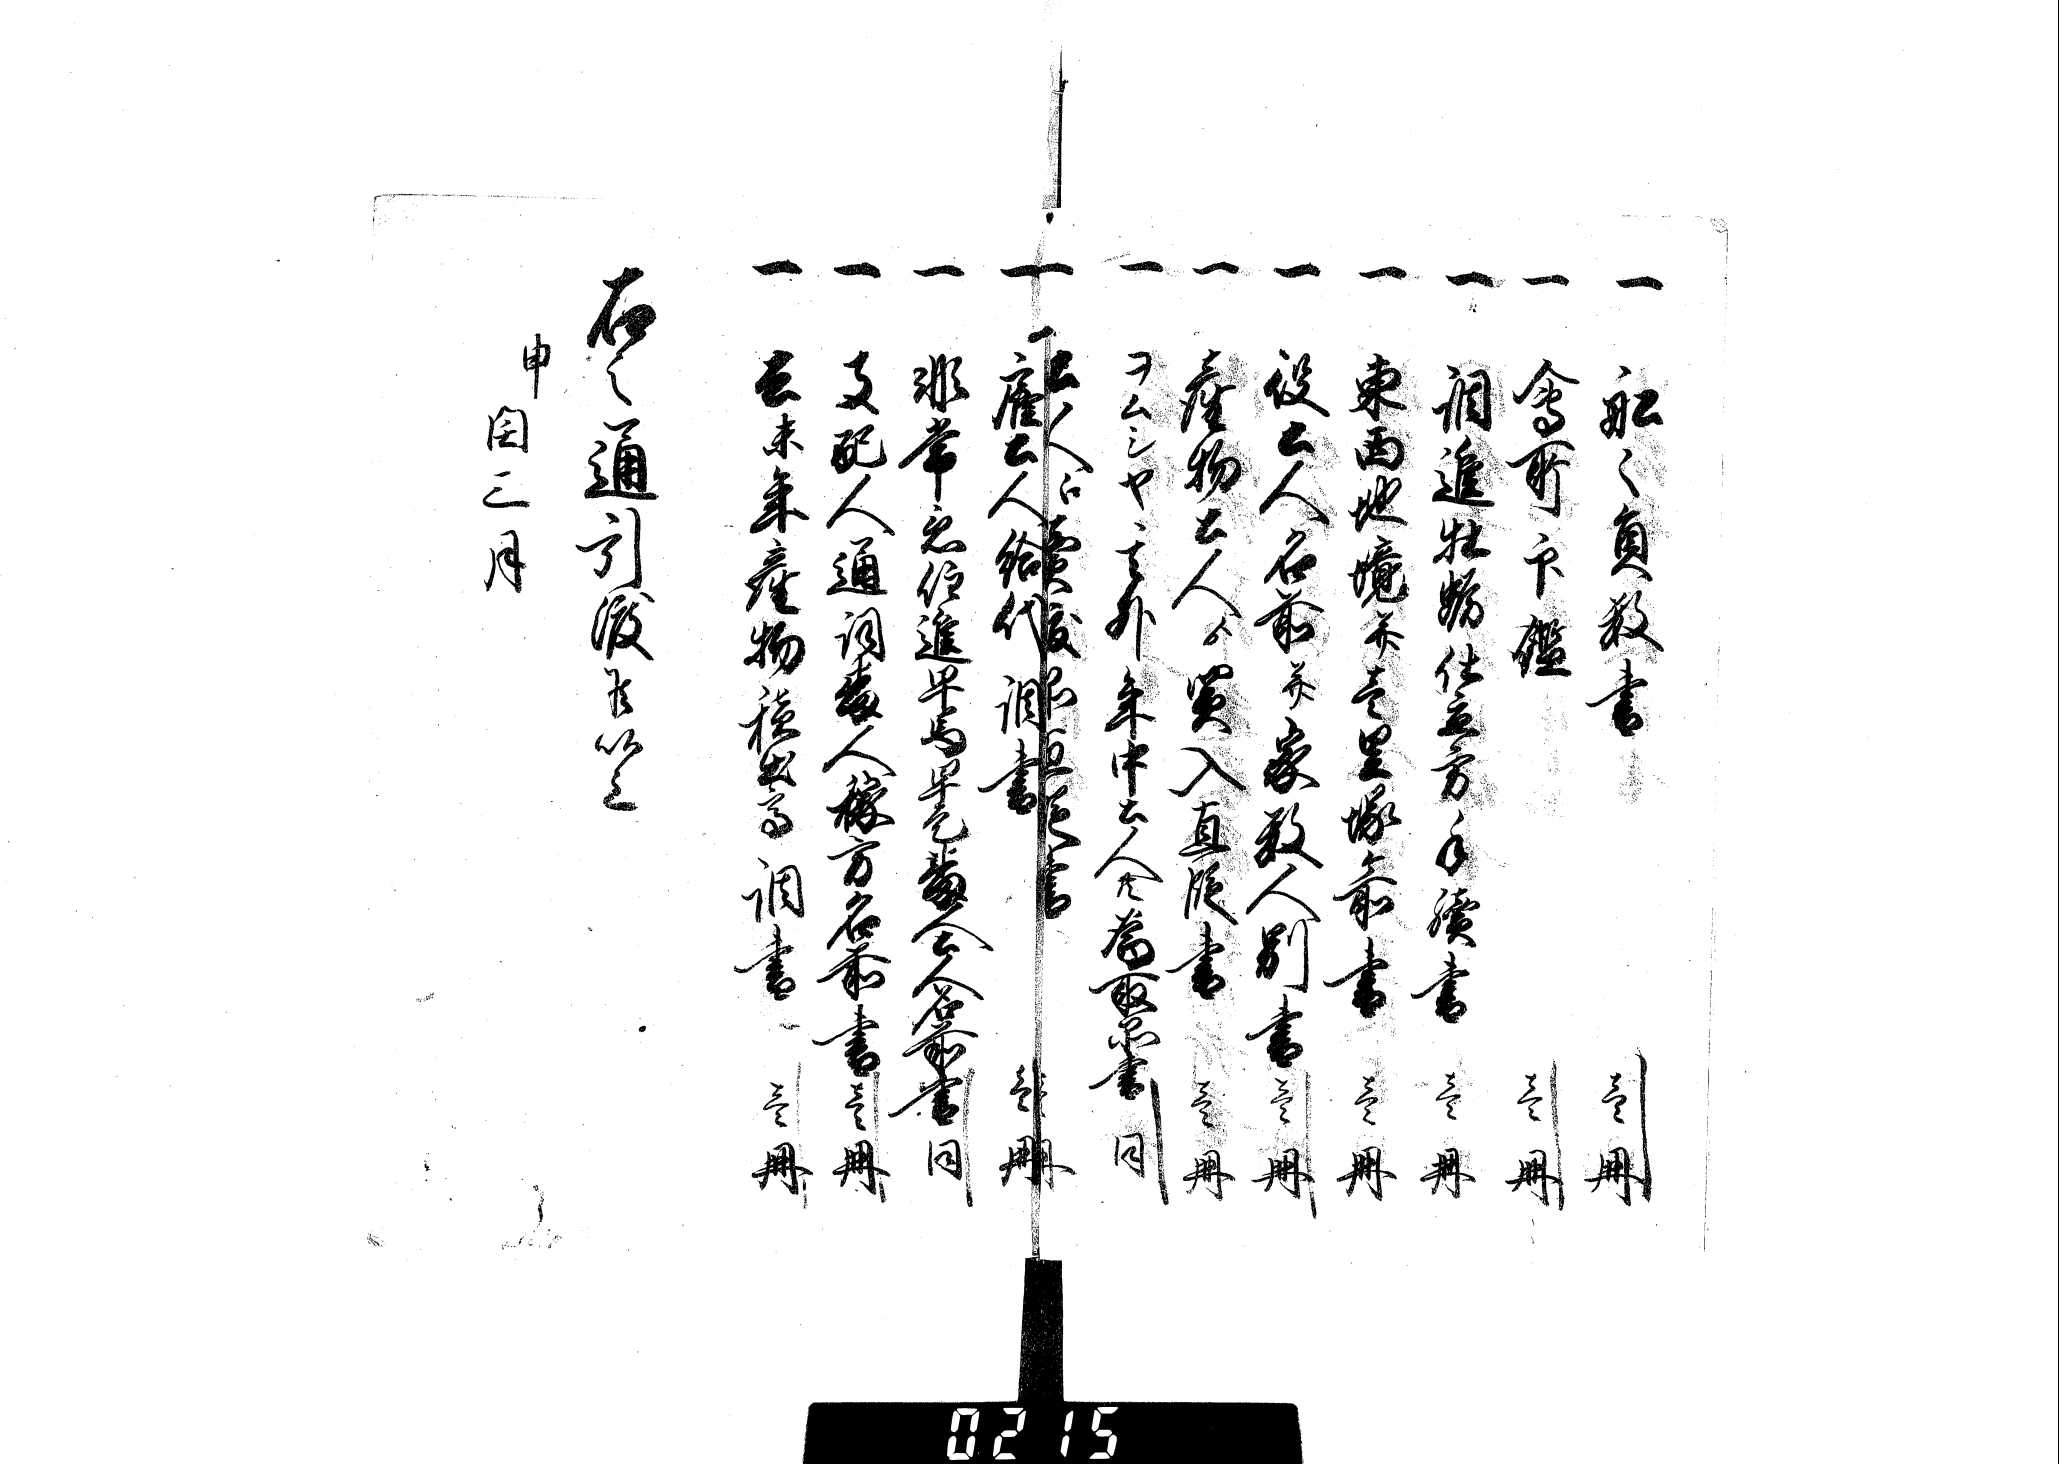 一 船々員数書 壱冊
一 会所下ケ鑑 壱冊
一 調進牡蛎仕立方手續書 壱冊
一 東西地境并壱里塚名前書 壱冊
一 役土人名前并家数人別書 壱冊
一 産物土人ゟ買入直段書 壱冊
一 ヲムシヤ其外年中土人共為取品書 同
一 土人江賣渡品直段書 壱冊
一 雇土人給代調書 壱冊
一 非常急伝進早馬早走番人土人名前書 同
一 支配人通詞番人稼方名前書 壱冊
一 去未年産物積出高調書 壱冊
右之通引渡申候以上
申
閏三月
0215